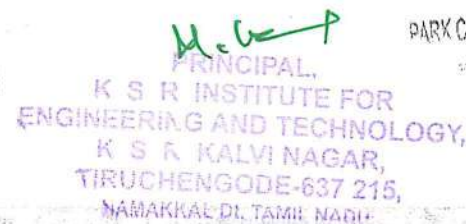 PARK C
PRINCIPAL,
K S R INSTITUTE FOR
ENGINEERING AND TECHNOLOGY,
K S R KALVI NAGAR,
TIRUCHENGODE-637 215,
NAMAKKAL DT. TAMIL NADU